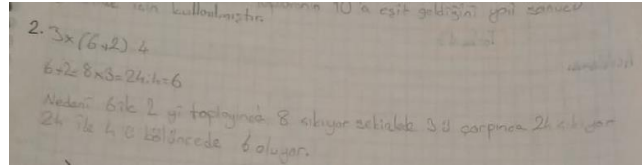 için kullanılmıştır. 10 a eşit geldiğini yani sonucu
2. 3x(6+2) 4
6+2=8x3=24:4=6
Nedeni 6 ile 2 yi toplayınca 8 çıkıyor sekizlek 3 ü çarpınca 24 çıkıyor
24 ile 4 ü bölüncede 6 oluyor.